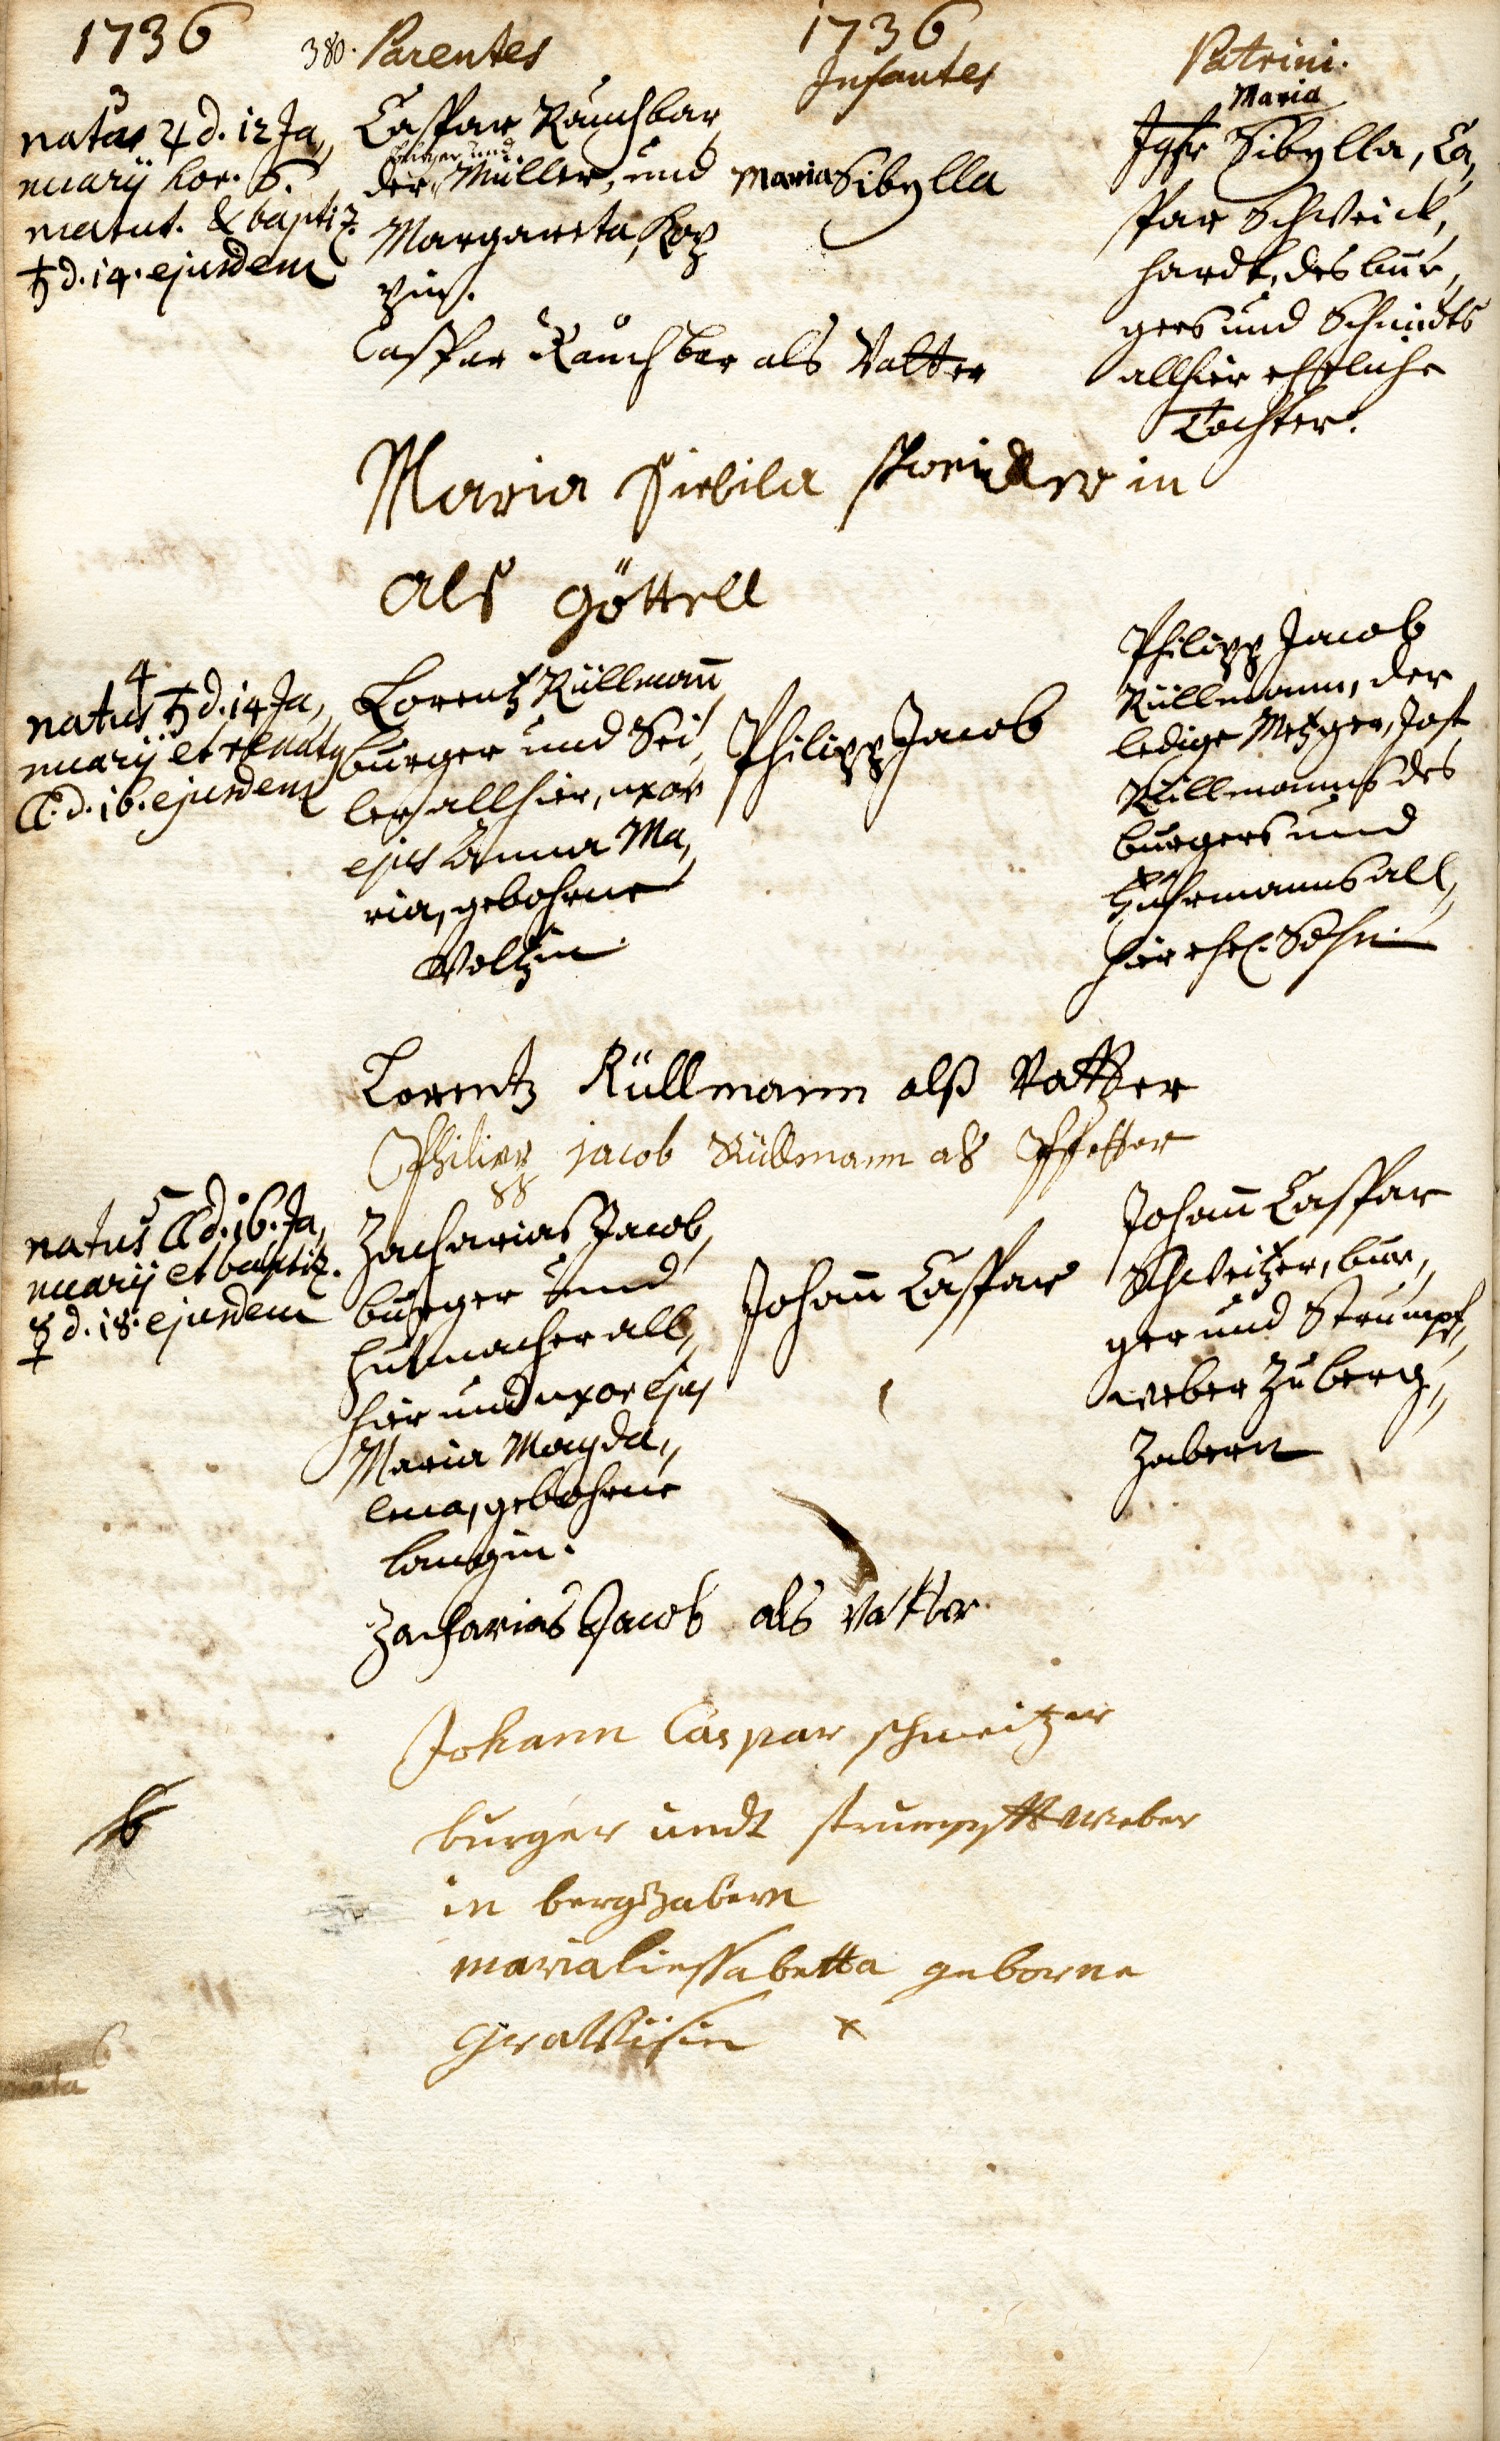 1736
380. Parentes
1736
Infantes
Patrini.
3
natus ♃ d. 12 Ja„
nuarij hor. 5.
matut. & baptiz.
♄ d. 14. ejusdem
Caspar Rauchbar,
burger und
der Müller, und
Margareta, Kop
pin.
Maria Sibylla
Maria
Jgfr Sibylla, Ca„
spar Schweick„
hardt, des bur„
gers und Schmidts
allhier ehliche
Tochter.
Casspar Rauchbar als Vatter
Maria Siebila
als Göttell
4
natus ♄ d. 14 Ja„
nuarij et renatus
☾ d. 16. ejusdem
Lorentz Rüllmann
burger und Sei„
ler allhier, uxor
ejus Anna Ma„
ria, gebohrne
Voltzin.
Philipp Jacob
Philipp Jacob
Rüllmann, der
ledige Metzger, Jost
Rüllmanns des
burgers und
Fuhrmanns all„
hier ehel. Sohn.
Lorentz Rüllmann alß Vatter
Philipp jacob Rüllmann als Pfetter
5
natus ☾ d. 16. Ja„
nuarij et baptiz.
☿ d. 18. ejusdem
Zacharias Jacob,
burger und
hutmacher all„
hier und uxor ejus
Maria Magda„
lena, gebohrne
Langin.
Johann Caspar
Johann Caspar
Schweitzer, bur„
ger und Strumpf„
weber zu berg„
zabern
Zacharias Jacob als Vatter
Johann Caspar schweitzer
burger undt strumpffweber
in bergzabern
maria liessabetta geborne
x
6
nata